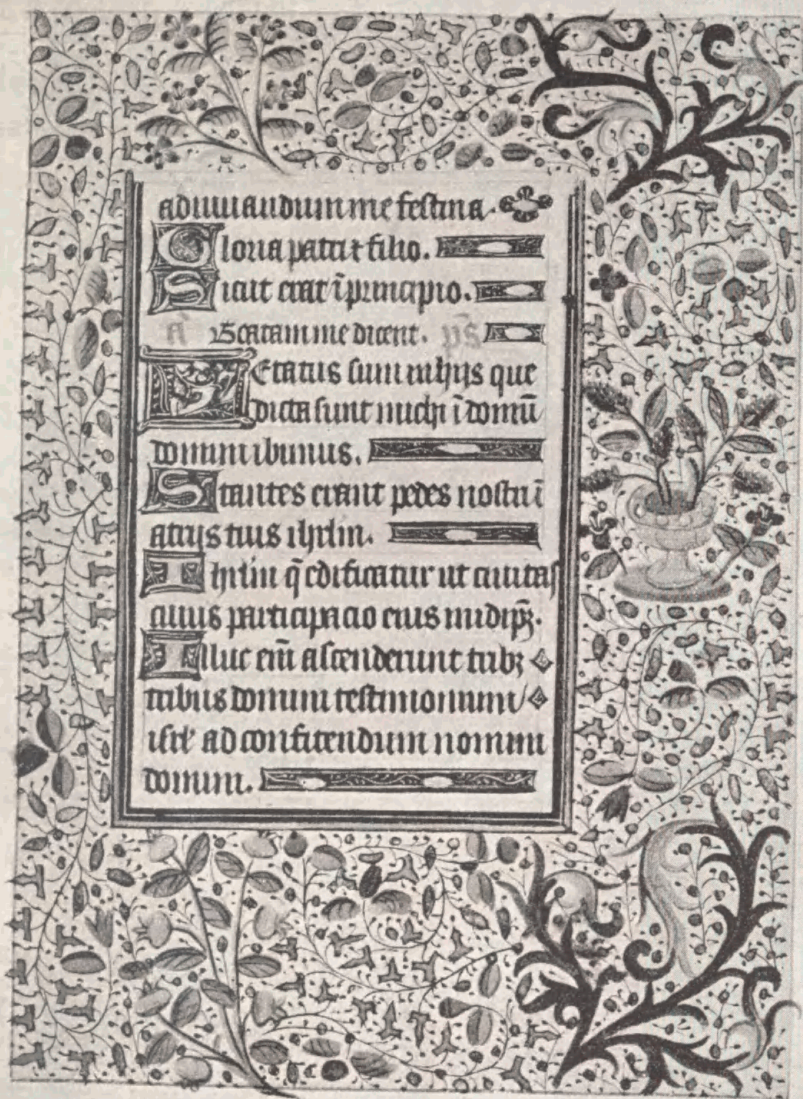 adiuuandum me festina.
Gloria patri ⁊ filio.
Sicut erat ī principio.
Beatam me dicent. ps̄
Letatus sum in hijs que
dicta sunt michi ī domū
domini ibimus.
Stantes erant pedes nostri ī
atrijs tuis ihrlm.
Ihrlm q̄ edificatur ut ciuitas
cuius participacio eius in idip̄ꝫ.
Illuc em̄ ascenderunt tribꝫ
tribus domini testimonium
isrl' ad confitendum nomini
domini.